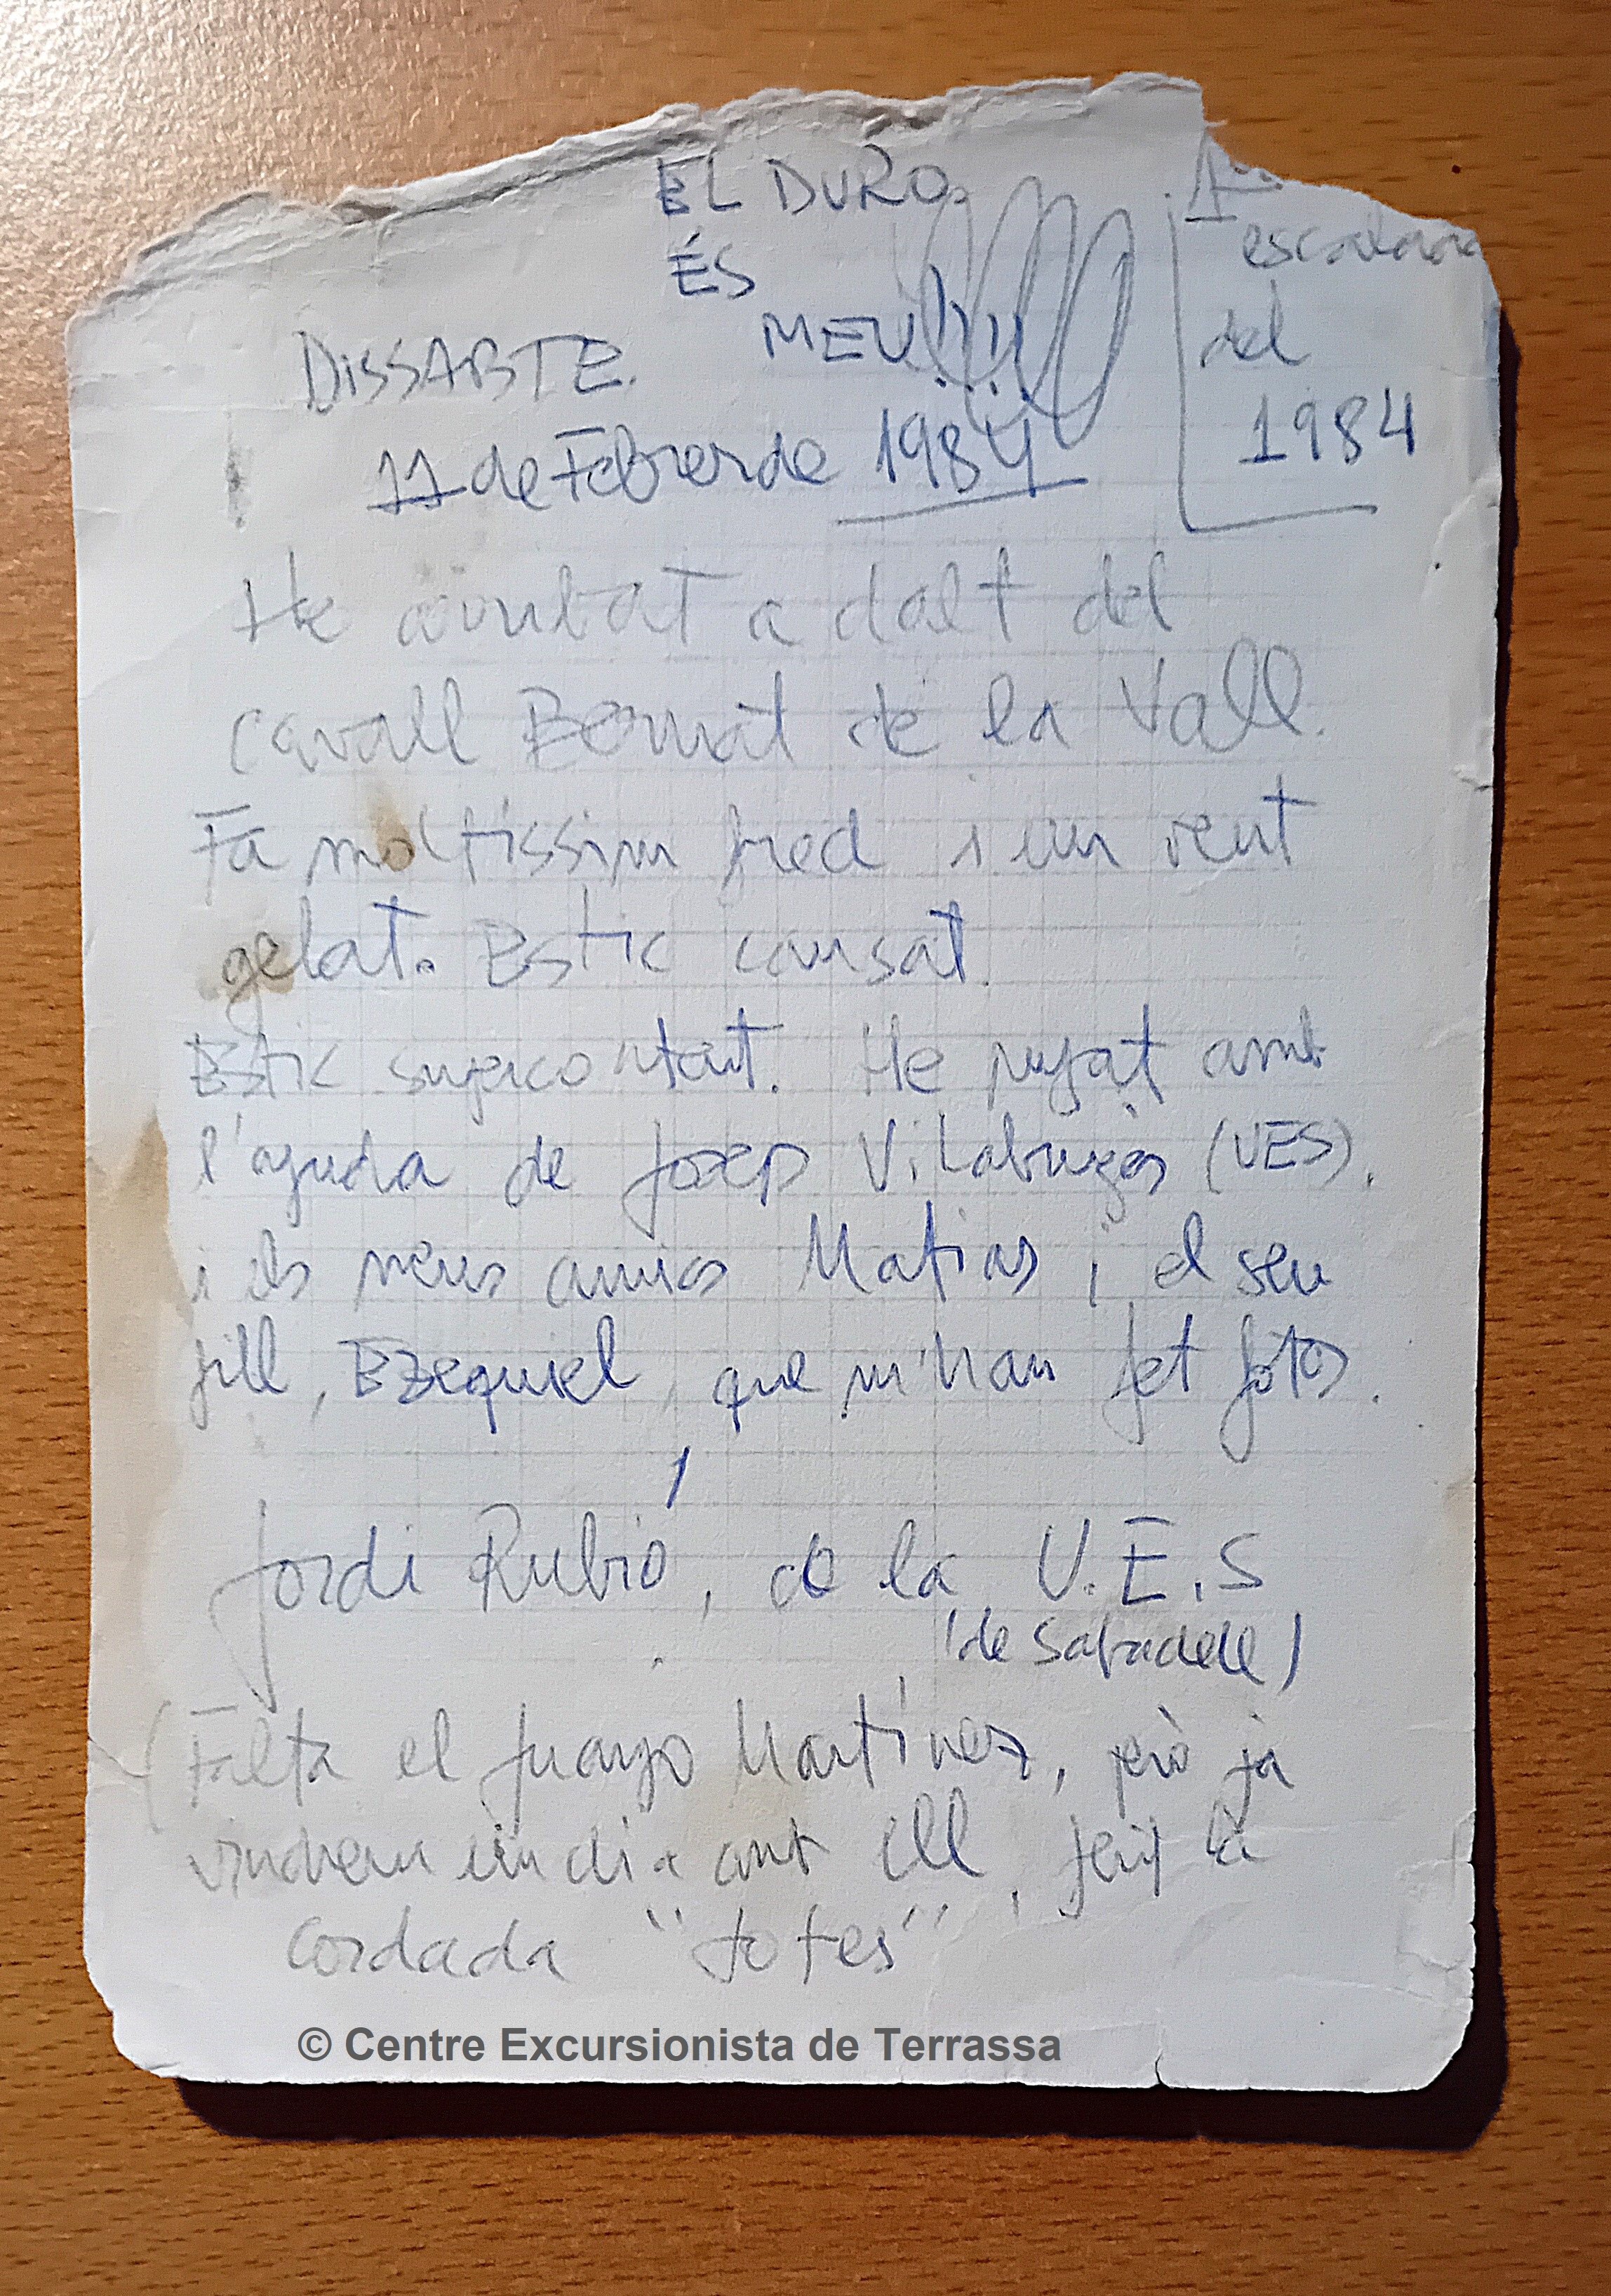 EL DURO
ÉS
MEU!!!!
1ª
escalada
del
1984
DISSABTE.
11 de Febrer de 1984
He arribat a dalt del
Cavall Bernat de la Vall.
Fa moltissim fred i un vent
gelat. Estic cansat.
Estic supercontent. He pujat amb
l'ajuda de Josep Vilabrugàs (UES).
i els meus amics Matias i el seu
fill, Ezequiel, que m'han fet fotos.
Jordi Rubió, de la U.E.S
(de Sabadell)
(Falta el Juanjo Martínez, però ja
vindrem un dia amb ell, fent la
cordada "totes"
© Centre Excursionista de Terrassa